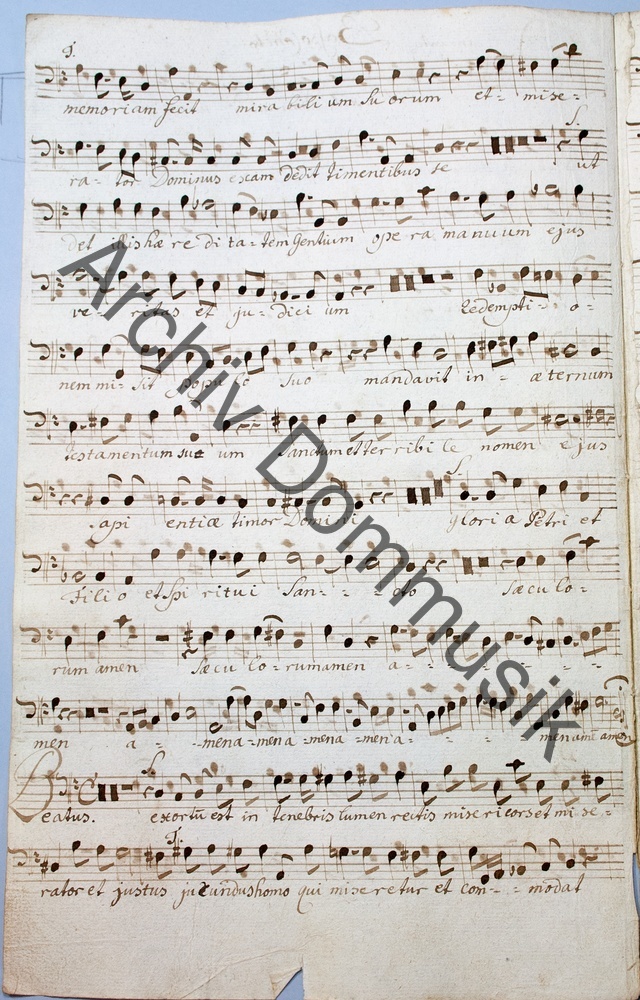 T.
memoriam fecit mira bili um su orum et- mise-
S.
ra- tor Dominus escam dedit timentibus se ut
det illis hæ re di ta- tem gentium ope ra manuum ejus
ve- ritas et ju- dici um Redempti- o-
nem mi- sit popu lo suo mandavit in- æ ternum
testamentum su um Sanctum et ter ribi le nomen ejus
S.
sapi entiæ timor Domini gloria Patri et
Filio et Spi ritui San- - - cto Sæcu lo-
rum amen Sæcu lo- rum amen a- - - - - -
men a- - - mena- mena- mena- mena- - - - men ame amen
S.
Beatus. exortū est in tenebris lumen rectis misericors et mi-se-
T.
rator et justus jucundus homo qui miseretur et com- - modat
Archiv Dommusik